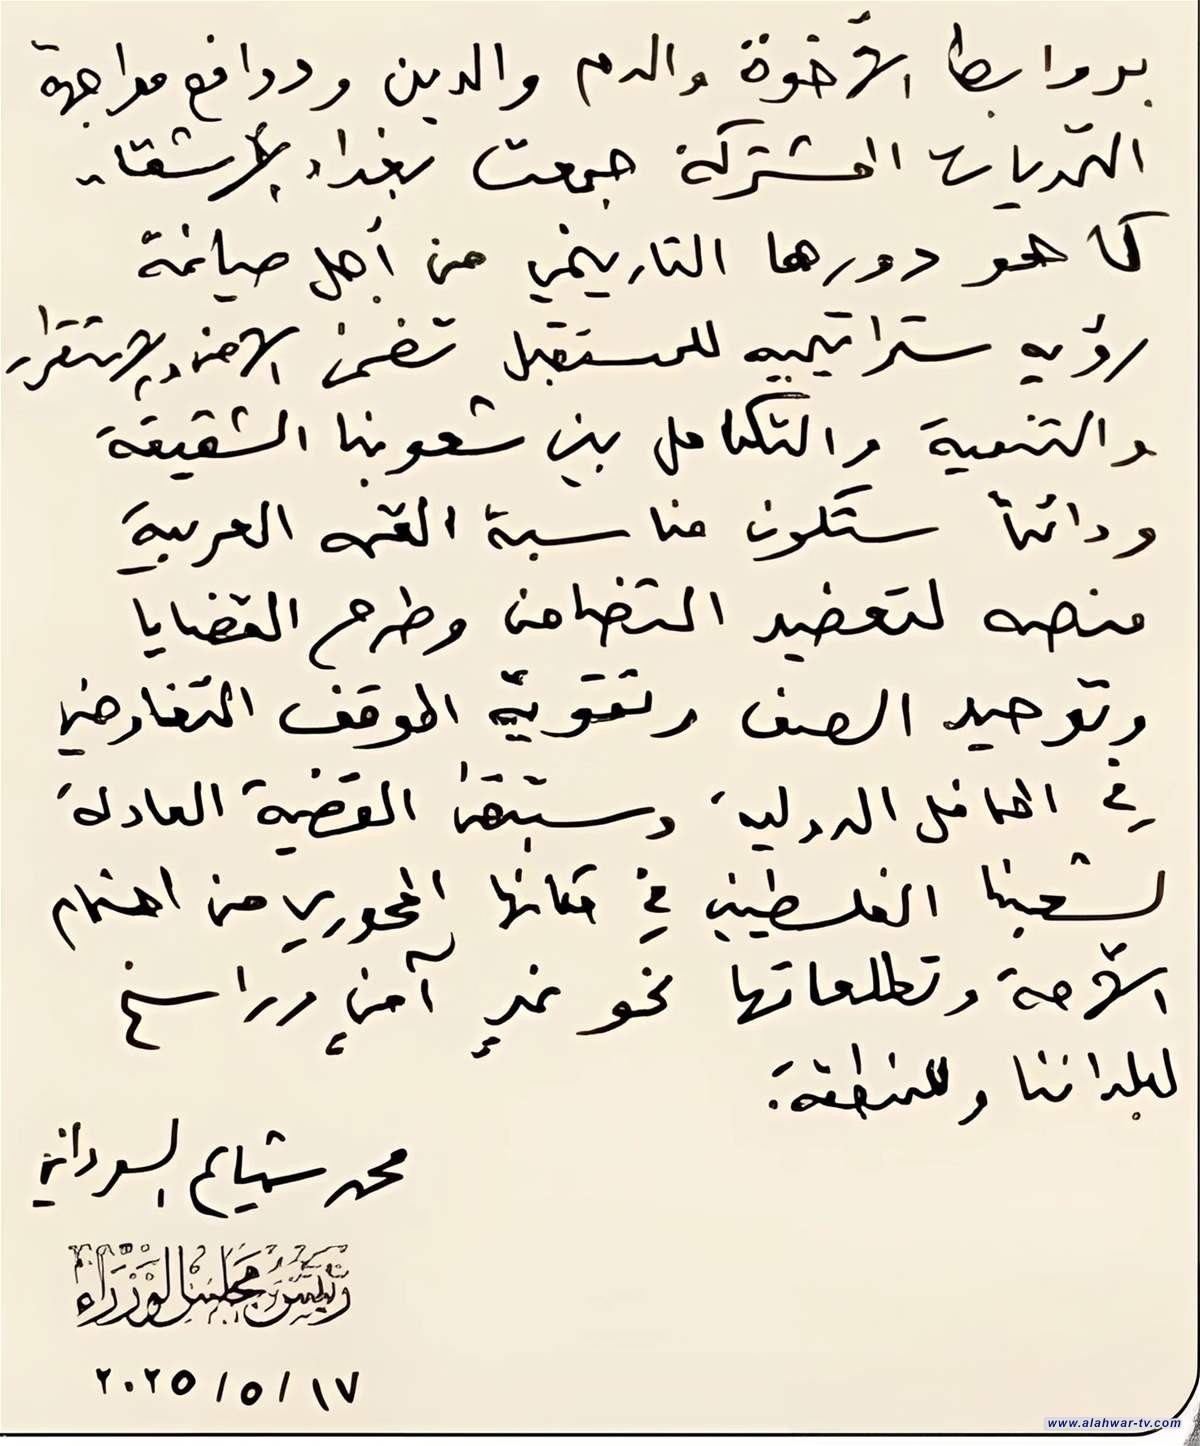 بروابط الأخوة والدم والدين ودوافع مواجهة
التحديات المشتركة جمعت بغداد الأشقاء
كما هو دورها التاريخي من أجل صياغة
رؤيه ستراتيجيه للمستقبل تضمن الامن والاستقرار
والتنمية والتكامل بين شعوبنا الشقيقة
ودائماً ستكون مناسبة القمه العربية
منصه لتعضيد التضامن وطرح القضايا
وتوحيد الصف وتقوية الموقف التفاوضي
في المحافل الدولية وستبقى القضية العادلة
لشعبنا الفلسطيني في مكانها المحوري من اهتمام
الأمة وتطلعاتها نحو غدٍ آمنٍ وراسخ
لبلداننا وللمنطقة.
محمد شياع السوداني
رئيس مجلس الوزراء
٢٠٢٥/٥/١٧
www.alahwar-tv.com